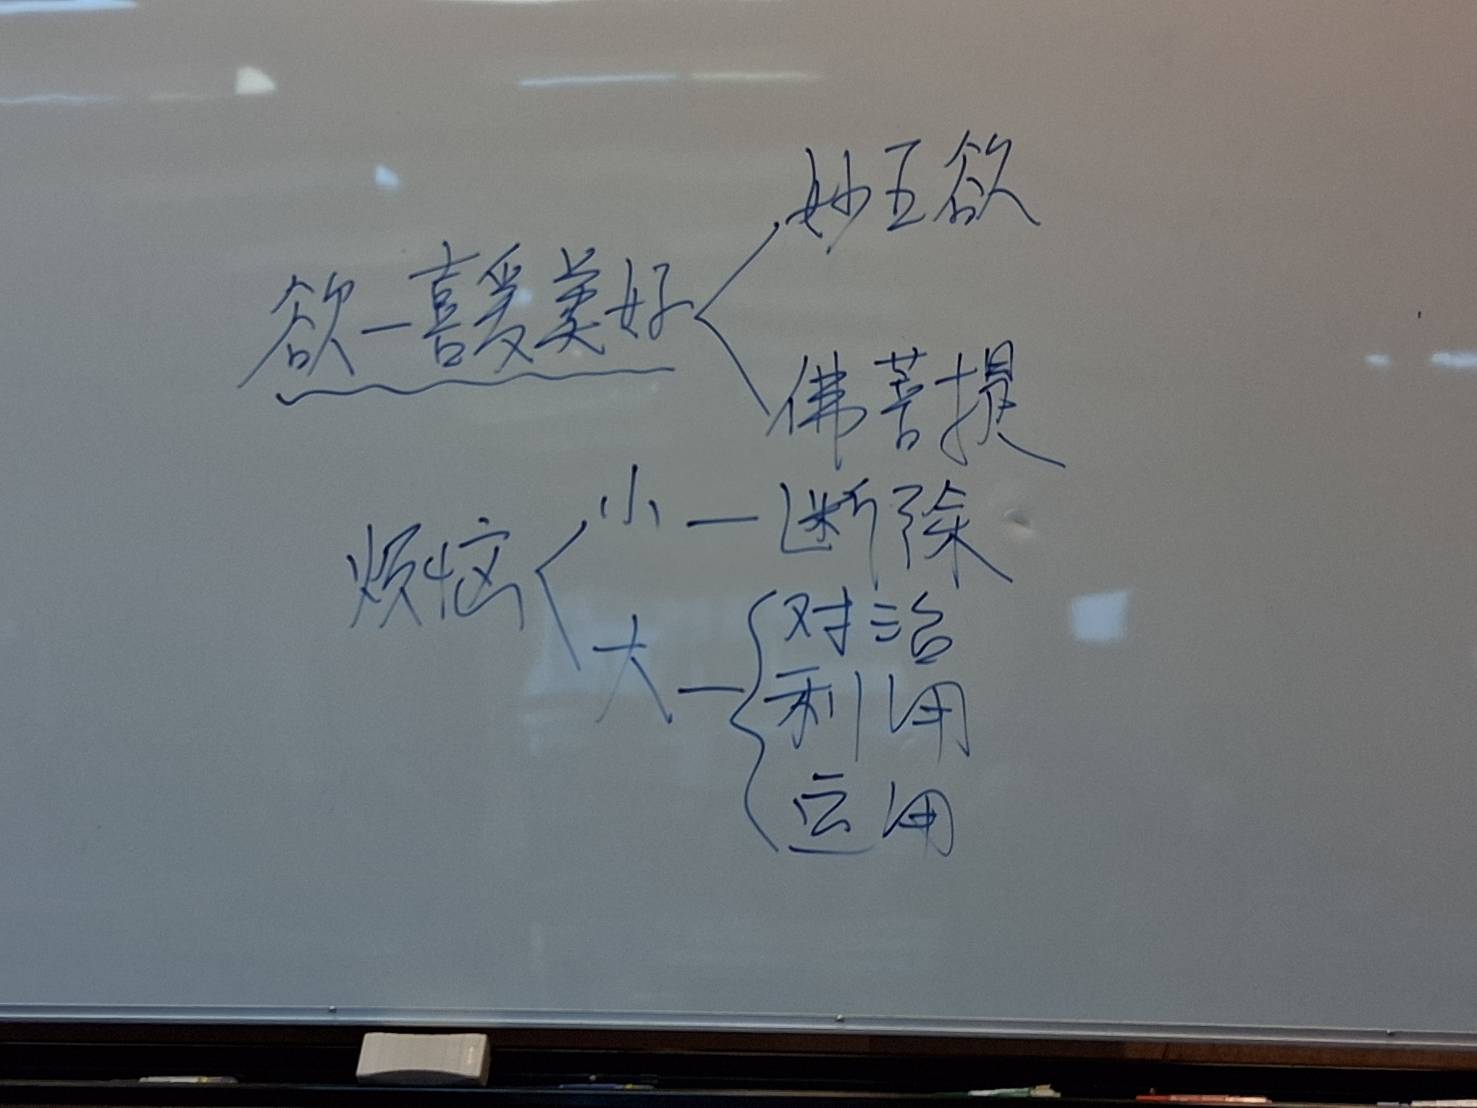 妙五欲
欲－喜爱美好
佛菩提
小－断除
烦恼
对治
大－利用
运用